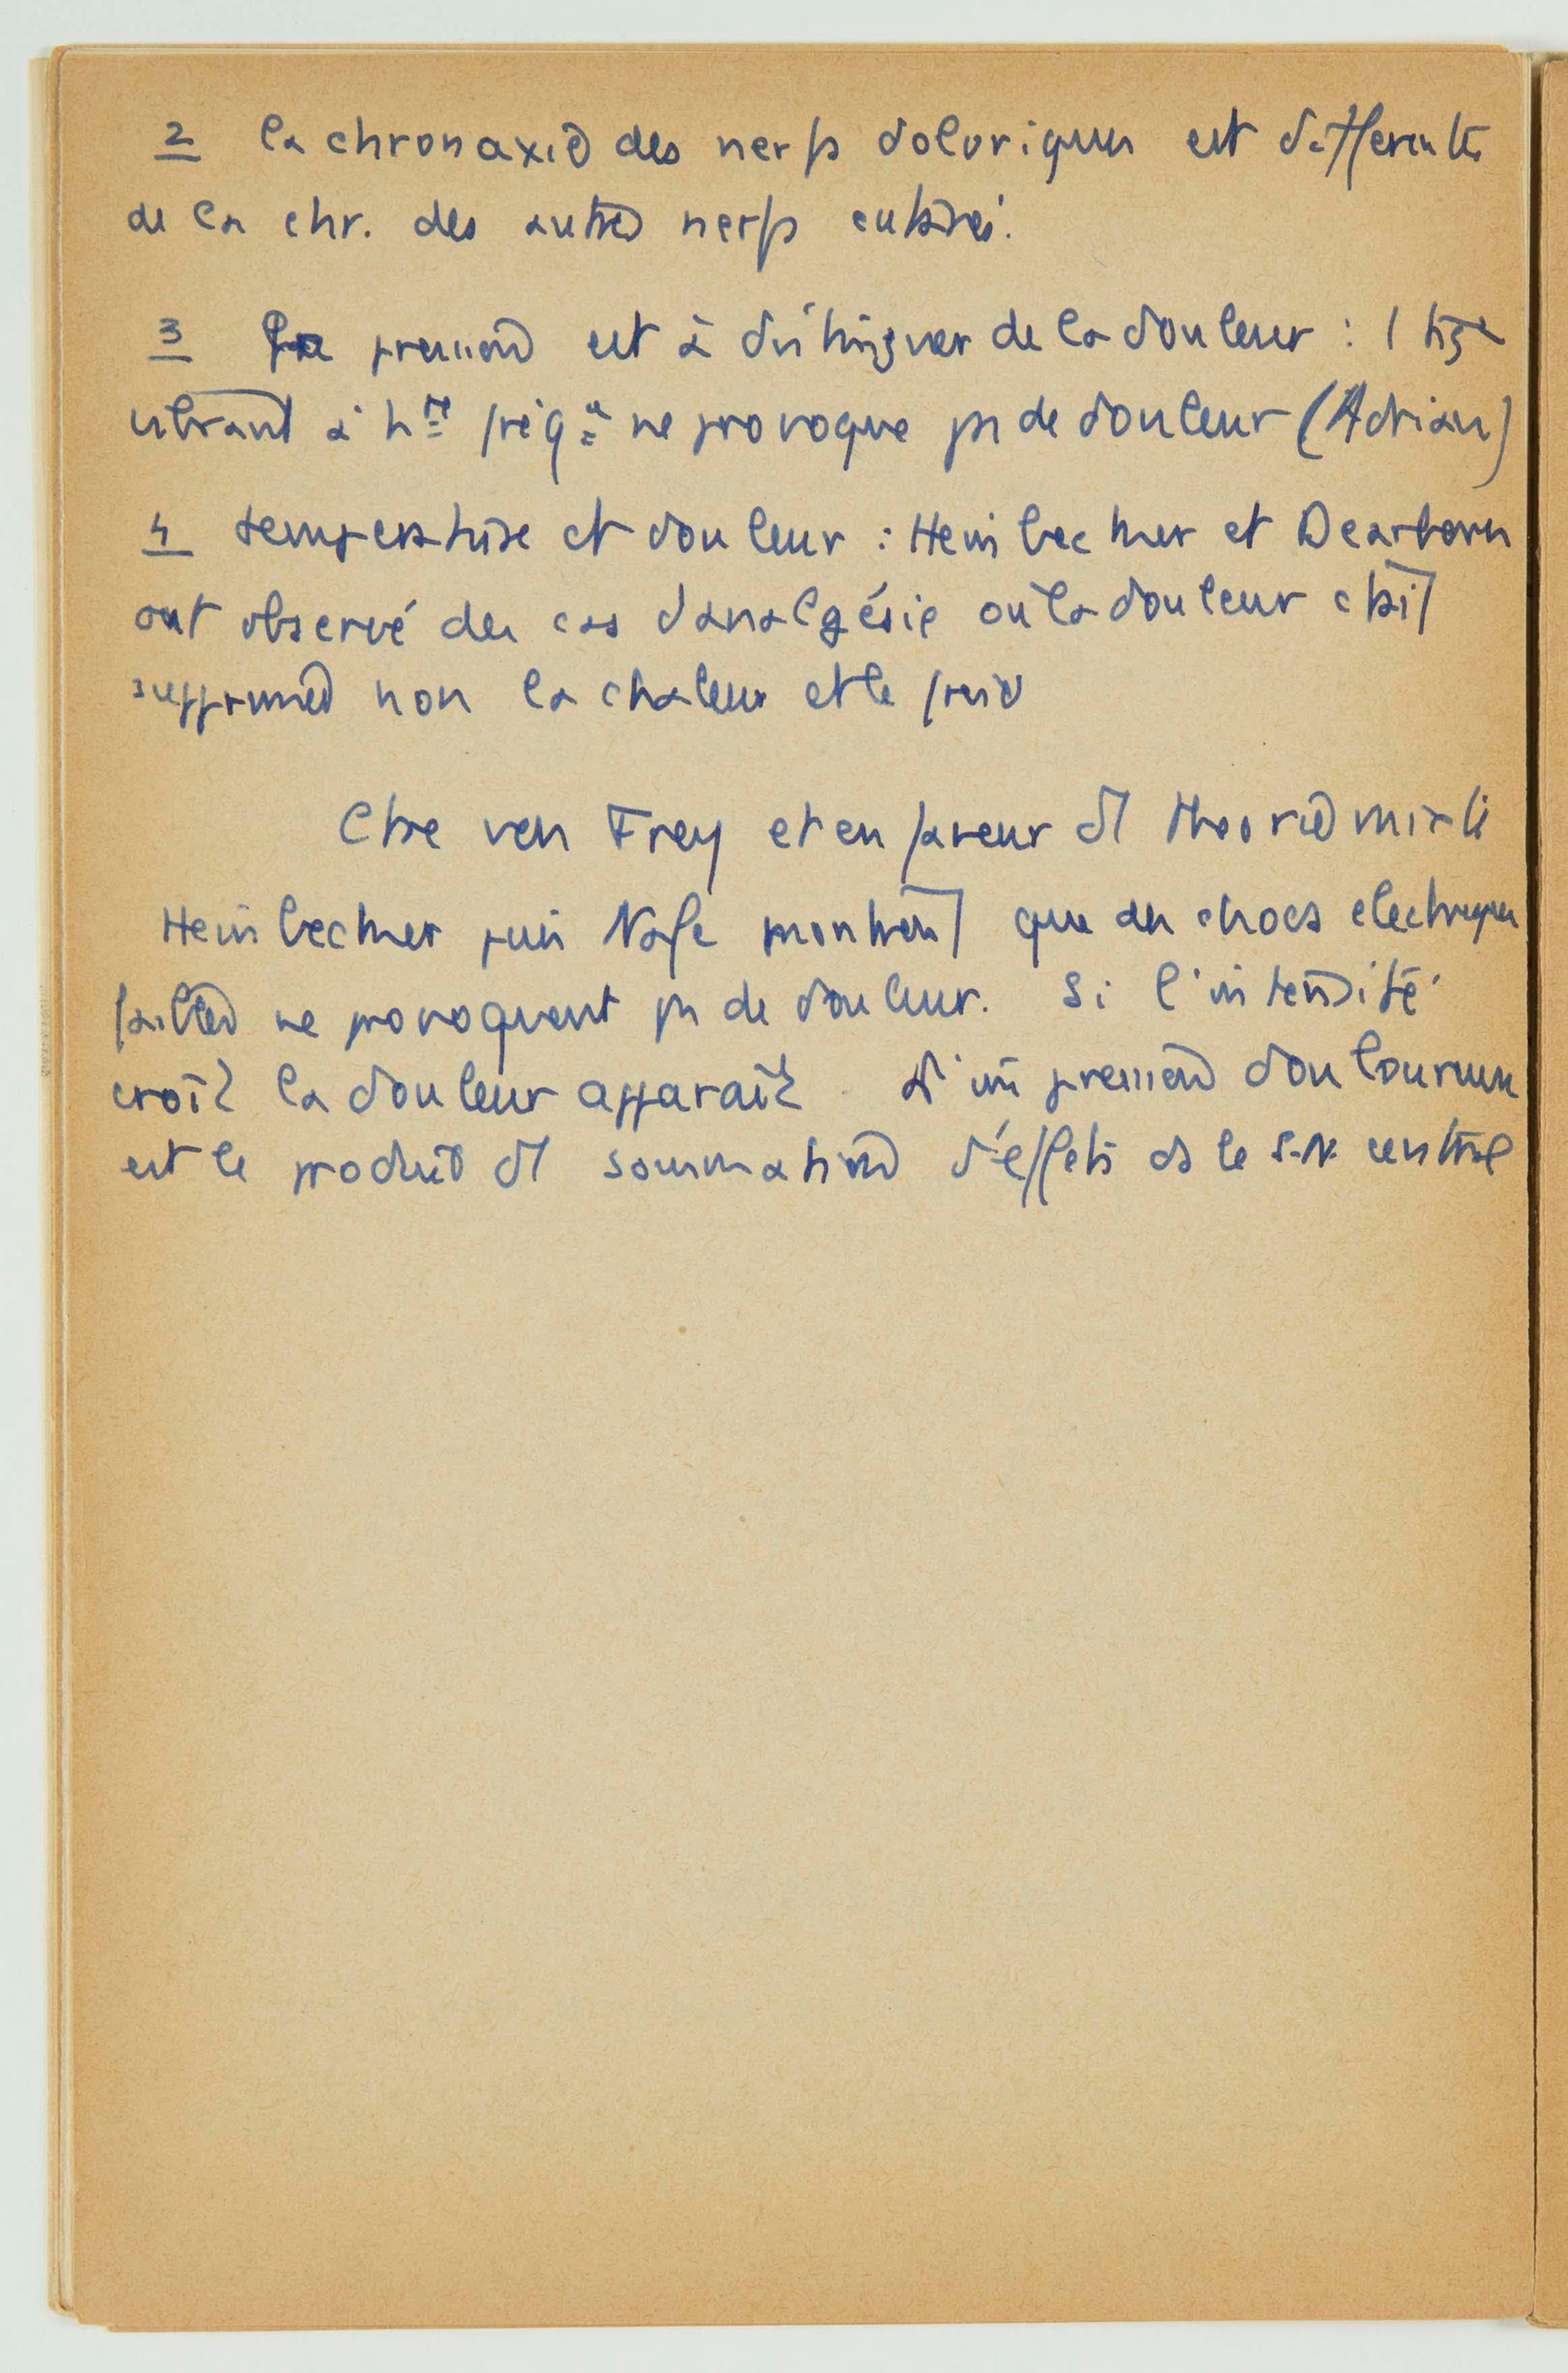 2 la chronaxie des nerfs doloriques est differente
de la chr. des autres nerfs cutanés.
3 La pression est à distinguer de la douleur : 1 tige
vibrant à hte fréq. ne provoque ps de douleur (Adrian)
4 température et douleur : Heinbecher et Dearborn
ont observé des cas d'analgésie où la douleur était
supprimée non la chaleur et le froid
Ctre von Frey et en faveur dl théorie mixte
Heinbecher puis Nafe montrent que des chocs electriques
faibles ne provoquent ps de douleur. Si l'intensité
croît la douleur apparaît. L'impression douloureuse
est le produit dl sommation d'effets ds le S.N. central